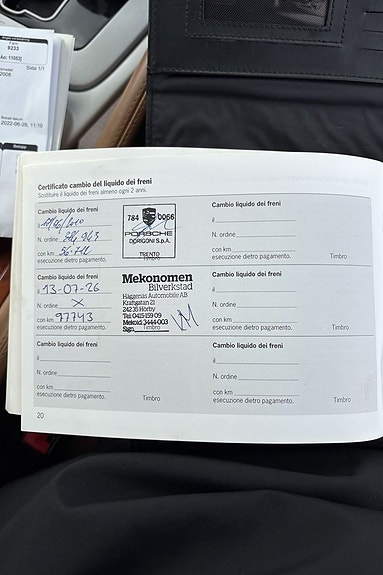 9233
2008
Sida 1/1
2022-06-28, 11:10
Certificato cambio del liquido dei freni
Sostituire il liquido dei freni almeno ogni 2 anni.
Cambio liquido dei freni
il
N. ordine
con km
esecuzione dietro pagamento.
784 0066
PORSCHE
DORIGONI S.p.A.
TRENTO
Timbro
Cambio liquido dei freni
il
N. ordine
con km
esecuzione dietro pagamento.
Timbro
Cambio liquido dei freni
il 13-07-26
N. ordine X
con km 97743
esecuzione dietro pagamento.
Mekonomen
Bilverkstad
Hägenäs Automobile AB
Kraftgatan 21
242 35 Hörby
Tel 0415-159 09
Mekoid 3444-003
Sign
Timbro
Cambio liquido dei freni
il
N. ordine
con km
esecuzione dietro pagamento.
Timbro
Cambio liquido dei freni
il
N. ordine
con km
esecuzione dietro pagamento.
Timbro
Cambio liquido dei freni
il
N. ordine
con km
esecuzione dietro pagamento.
Timbro
20